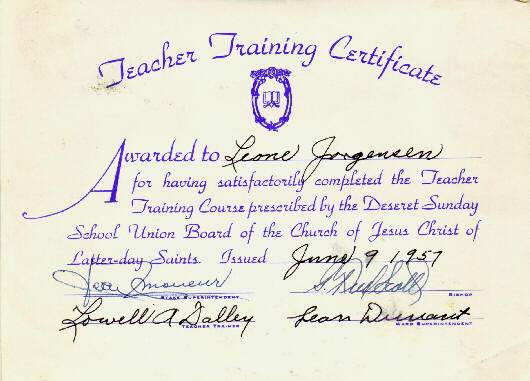 Teacher Training Certificate
Awarded to Leone Jorgensen
for having satisfactorily completed the Teacher
Training Course prescribed by the Deseret Sunday
School Union Board of the Church of Jesus Christ of
Latter-day Saints. Issued June 9 1957
STAKE SUPERINTENDENT
BISHOP
Lowell A Dalley Lean Durrant
TEACHER TRAINER WARD SUPERINTENDENT